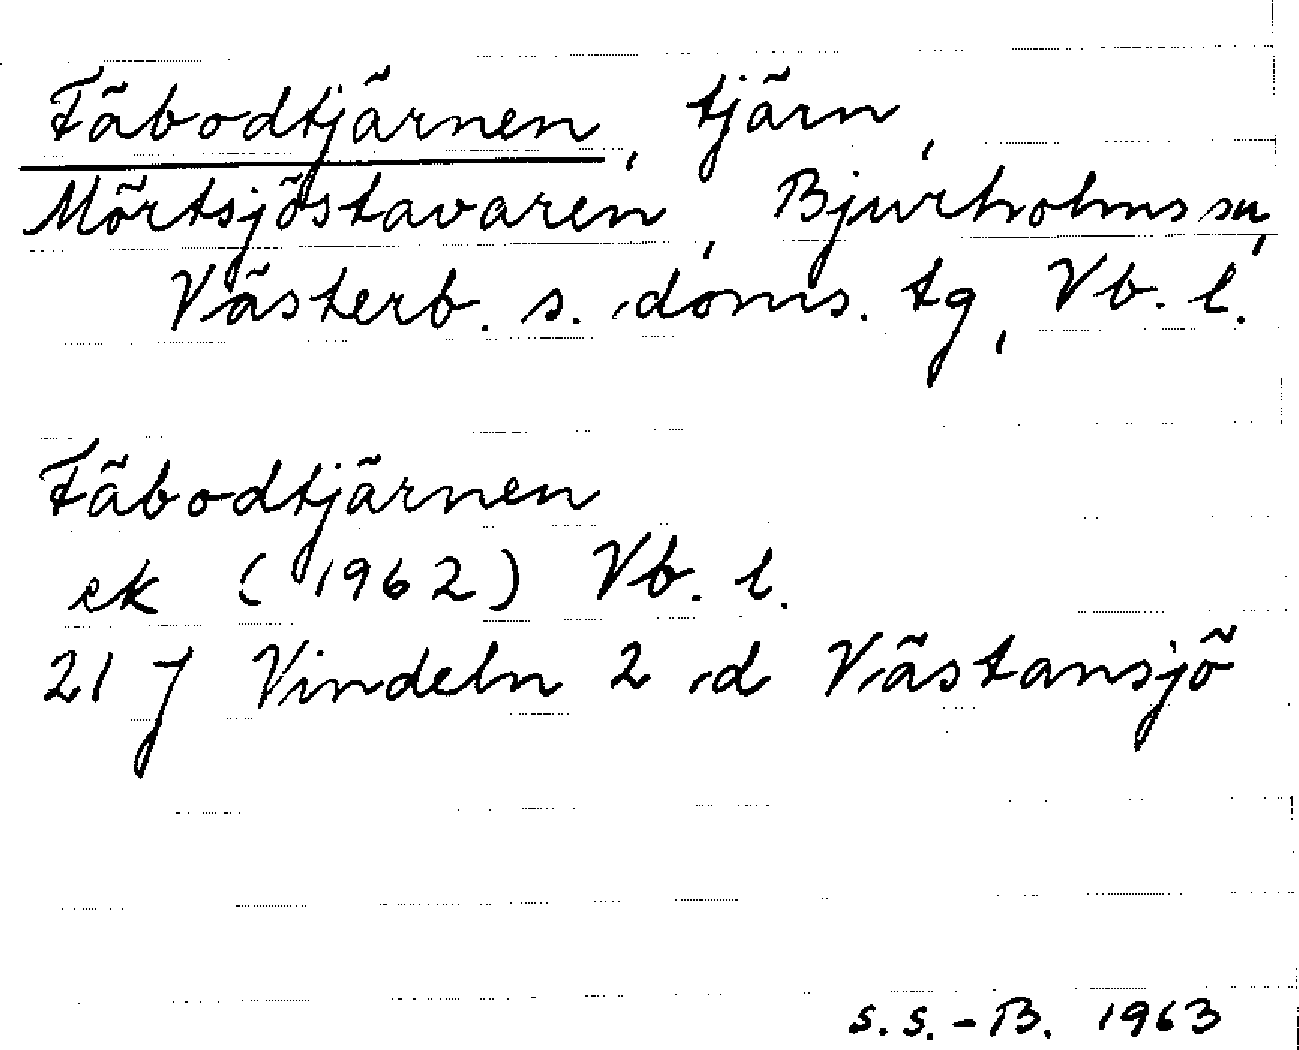 Fäbodtjärnen, tjärn,
Mörtsjöstavaren, Bjurholms sn,
Västerb. s. doms. tg, Vb. l.
Fäbodtjärnen
ek (1962) Vb. l.
21 J Vindeln 2 d Västansjö
S.S.-B. 1963